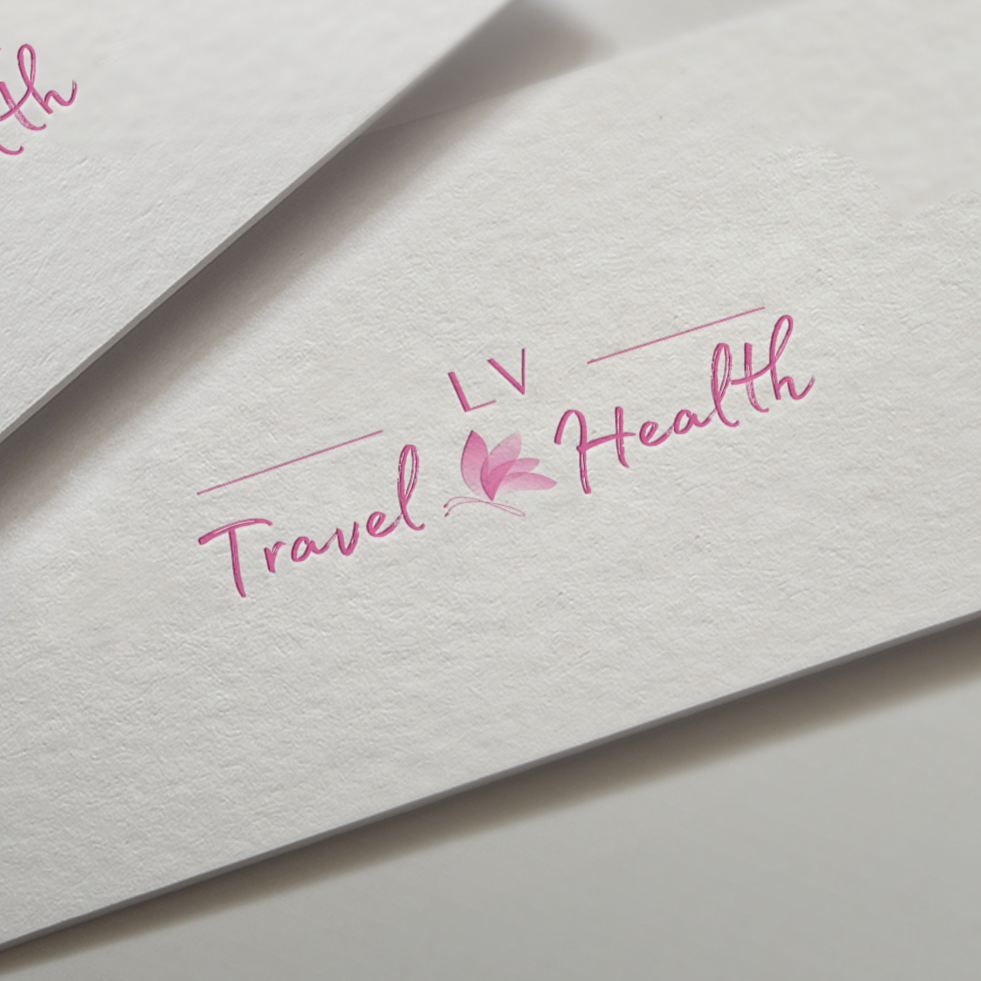 th
LV
Travel Health